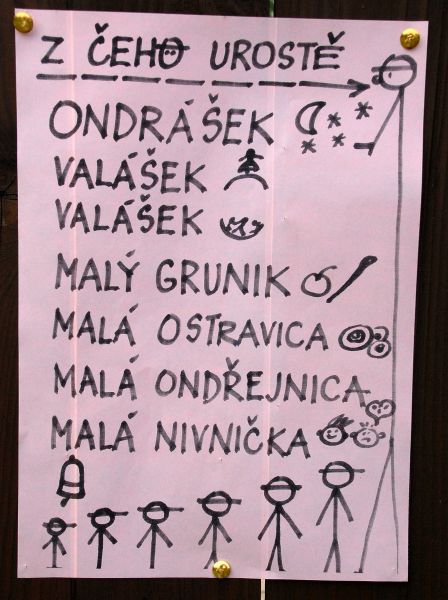 Z ČEHO UROSTĚ
ONDRÁŠEK
VALÁŠEK
VALÁŠEK
MALÝ GRUNIK
MALÁ OSTRAVICA
MALÁ ONDŘEJNICA
MALÁ NIVNIČKA